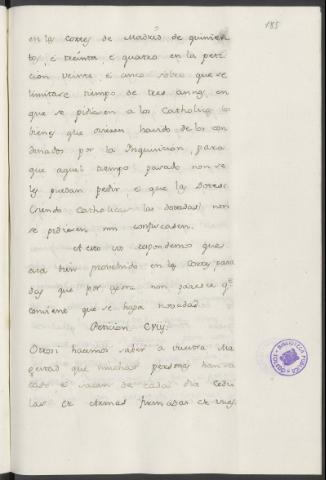 185
en las cortes de Madrid de quinien
tos, e treinta, e quatro en la peti
cion veinte, e cinco sobre que se
limitase tiempo de tres años, en
que se pidiesen a los Catholicos los
bienes que oviesen havido de los con
denados por la Inquisicion, para
que aquel tiempo pasado non se
les puedan pedir, e que las Dotes
siendo Catholicas las dotadas non
se pidiesen nin confiscasen.
A esto vos respondemos que
esta bien provehido en las Cortes pasa
das que por agora non paresce qe
conviene que se haga novedad.
Peticion CXIJ.
Otrosi hacemos saber a vuestra Ma
gestad que muchas personas han sa
cado e sacan de cada dia cedu
las de firmadas de vues